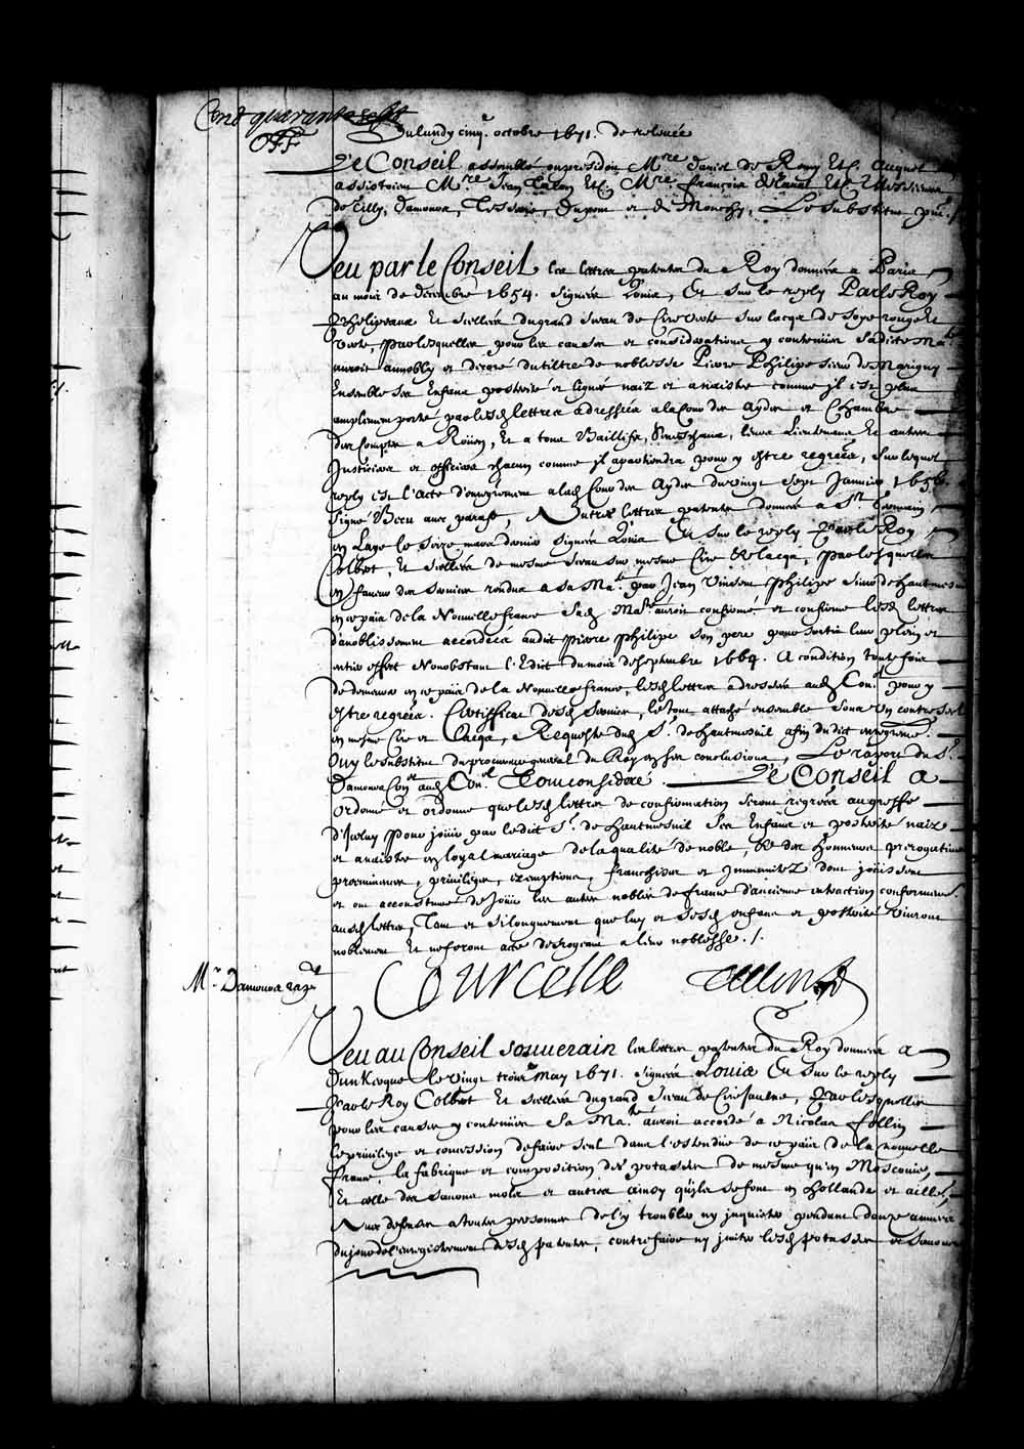 Cent quarante sept
Du lundy cinq.e octobre 1671. de relevée
Le Conseil assemblé ou presidoit M.re daniel de Remy Etc. Auquel
assistoient M.re Jean Talon Etc. M.re françois de Laval Etc. Messieurs
de Tilly, damours, Dupont et de Mouchy, Le substitut pnt./
Veu par le Conseil les lettres patentes du Roy données a Paris
au mois de decembre 1654. signées Louis, Et sur le reply Par le Roy
Phelipeaux Et scellées du grand sceau de Cire verte sur lacqs de soye rouge Et
verte, par lesquelles pour les causes et considerations y contenües Sadite Ma.té
auroit annobly et decoré du tiltre de noblesse Pierre Philipe sieur de Marigny
Ensemble ses Enfans posterité et lignée naiz et a naistre comme jl est plus
amplement porté par lesd lettres adressées a la Cour des Aydes et Chambre
des Comptes a Roüen, Et a tous Baillifs, Seneschaux, leurs Lieutenans Et autres
Justiciers et officiers chacun comme jl apartiendra pour y estre regrées, sur lequel
reply est l'acte d'enregrement a lad Cour des Aydes du vingt sept Janvier 1656.
signé avec paraphe, Autres lettres patentes données a S.t Germain
en Laye le seize mars dernier signées Louis Et sur le reply Par le Roy
Colbert, Et scellées de mesme sceau sur mesme Cire et lacqs, par lesquelles
en faveur des services rendus a sa Ma.té par Jean Vincent Philipe sieur de hautmesnil
en ce païs de la Nouvelle france Sad Ma.té auroit confirmé et confirme lesd lettres
d'anoblissement accordées audit Pierre Philipe son pere pour sortir leur plein et
entier effect Nonobstant l'Edict du mois de septembre 1664. A condition toutefois
de demeurer en ce païs de la Nouvelle france, lesd lettres adressées aud Con.el pour y
estre regrées. Certifficat desd services, le tout attaché ensemble sous Un contrescel
en mesme Cire et Lacqs, Requeste dud S.r de hautmesnil afin dudict enregrement.
Ouy le substitut du procureur general du Roy en ses conclusions, Le raport du S.r
Damours Con.er aud Con.el Tout consideré. Le Conseil a
ordonné et ordonne que lesd lettres de confirmation seront regrées au greffe
d'Jceluy pour joüir par ledict S.r de hautmesnil ses Enfans et posterité naiz
et a naistre en loyal mariage de la qualité de noble, Et des honneurs prerogatives
preeminences, privileges, exemptions, franchises et Jmmunitez dont joüissent
et ont accoustumé de joüir les autres nobles de france d'ancienne extraction conformem.t
ausd lettres, Tant et si longuement que luy et sesd enfans et posterité vivront
noblement Et ne feront acte derogeant a leur noblesse./.
M.r Damours rap.r
Courcelle Talon
Veu au Conseil souverain les lettres patentes du Roy données a
Dunkerque le vingt trois.e May 1671. signées Louis Et sur le reply
Par le Roy Colbert Et scellées du grand sceau de Cire Jaulne, Par lesquelles
pour les causes y contenües Sa Ma.té auroit accordé a Nicolas Follin
le privilege et concession de faire seul dans l'estendüe de ce païs de la nouvelle
france, la fabrique et composition des potasses de mesme qu'en Moscovie,
Et celle des savons mols et autres ainsy qu'jls se font en hollande et aille.rs,
Avec defenses a toutes personnes de l'y troubler ny jnquieter pendant douze années
du jour de l'enregistrement desd patentes, contrefaire ny jmiter lesd potasses et savons